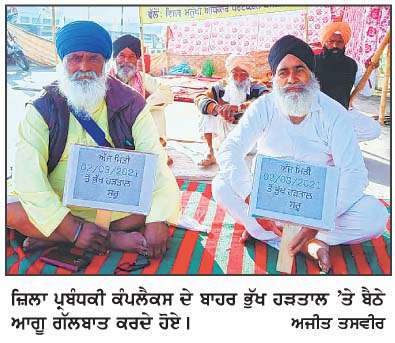 ਅੱਜ ਮਿਤੀ
02/03/2021
ਤੋਂ ਭੁੱਖ ਹੜਤਾਲ
ਸ਼ੁਰੂ
ਅੱਜ ਮਿਤੀ
02/03/2021
ਤੋਂ ਭੁੱਖ ਹੜਤਾਲ
ਸ਼ੁਰੂ
ਜ਼ਿਲਾ ਪ੍ਰਬੰਧਕੀ ਕੰਪਲੈਕਸ ਦੇ ਬਾਹਰ ਭੁੱਖ ਹੜਤਾਲ 'ਤੇ ਬੈਠੇ
ਆਗੂ ਗੱਲਬਾਤ ਕਰਦੇ ਹੋਏ। ਅਜੀਤ ਤਸਵੀਰ